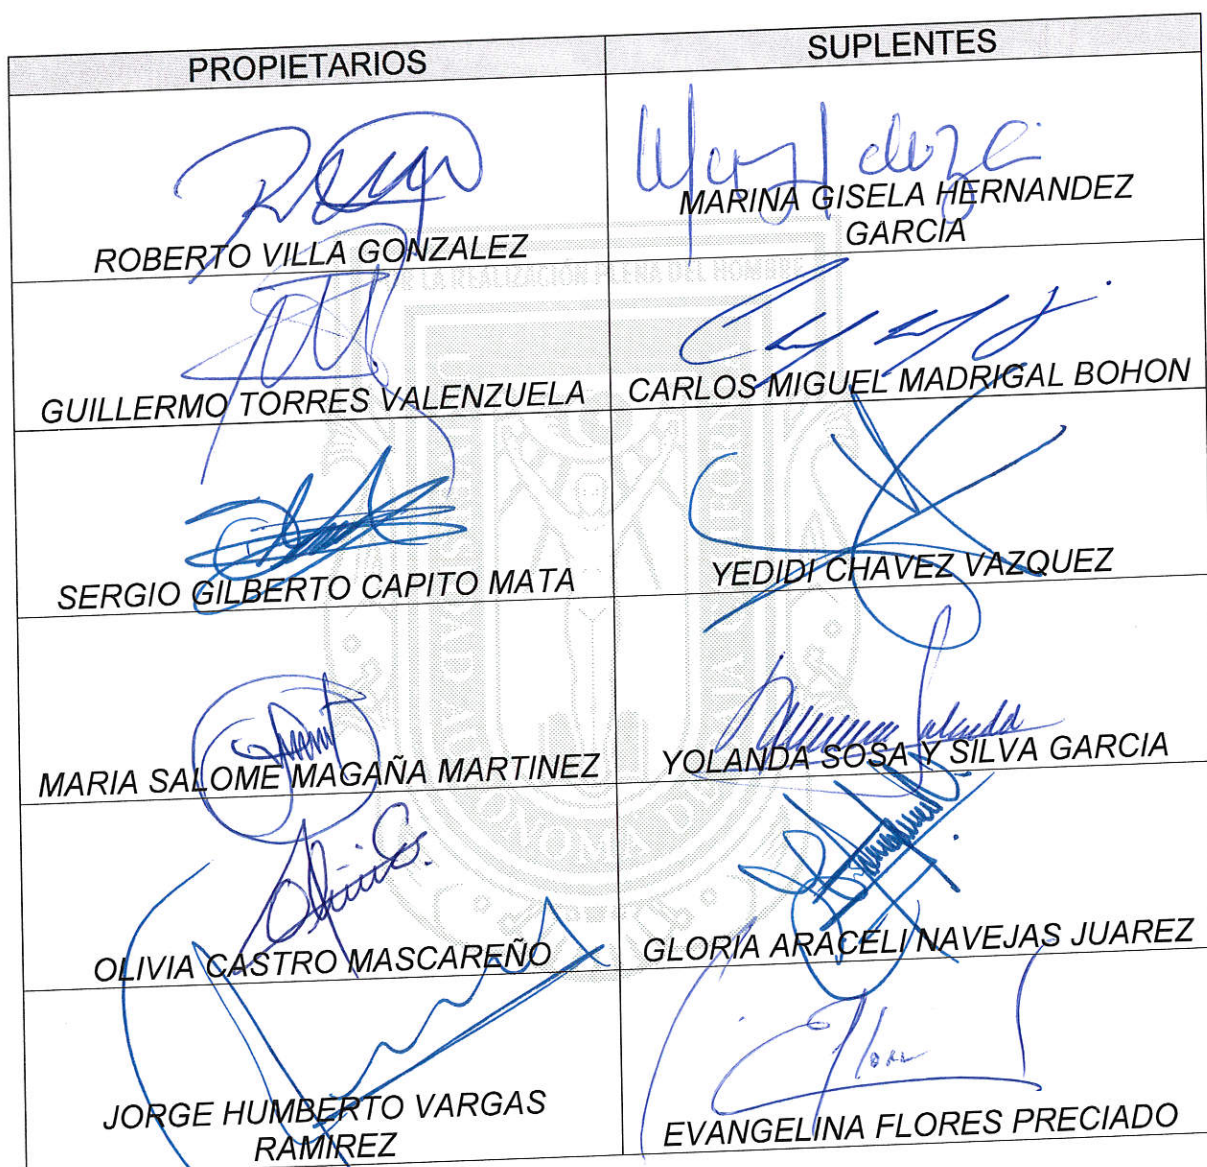 PROPIETARIOS
SUPLENTES
ROBERTO VILLA GONZALEZ
MARINA GISELA HERNANDEZ
GARCIA
POR LA REALIZACIÓN PLENA DEL HOMBRE
GUILLERMO TORRES VALENZUELA
CARLOS MIGUEL MADRIGAL BOHON
SERGIO GILBERTO CAPITO MATA
YEDIDI CHAVEZ VAZQUEZ
MARIA SALOME MAGAÑA MARTINEZ
YOLANDA SOSA Y SILVA GARCIA
OLIVIA CASTRO MASCAREÑO
GLORIA ARACELI NAVEJAS JUAREZ
JORGE HUMBERTO VARGAS
RAMIREZ
EVANGELINA FLORES PRECIADO